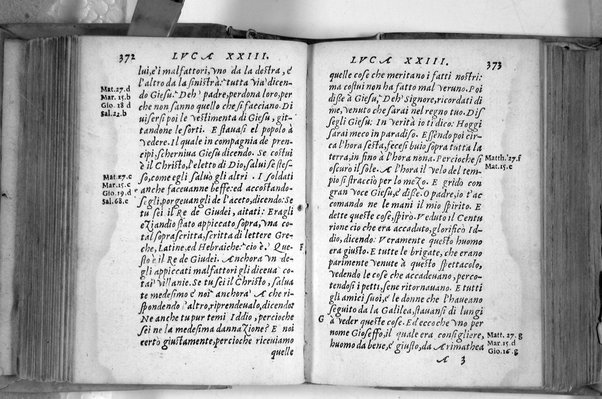 372 LVCA XXIII.
lui, e'i malfattori, vno da la destra, e
l'altro da la sinistra: tutta via dicen-
do Giesu. Deh padre, perdona loro, per
che non sanno quello che si facciano. Di
uisersi poi le vestimenta di Giesu, git-
tandone le sorti. E stauasi el popolo à
vedere. Il quale in compagnia de pren-
cipi, scherniua Giesu dicendo. Se costui
è il Christo, l'eletto di Dio, salui se stes-
so, come egli saluò gli altri. I soldati
anche faceuanne beffe: ed accostando-
segli, porgeuangli de l'aceto, dicendo: Se
tu sei il Re de' Giudei, aitati: Eragli
eziandio stato appiccato sopra, vna co-
tal soprascritta, scritta di lettere Gre-
che, Latine, ed Hebraiche: cio è. Que-
sto è il Re de Giudei. Anchora vn de-
gli appiccati malfattori gli diceua co-
tai villanie. Se tu sei il Christo, salua
te medesimo è noi anchora. A che ri-
spondendo l'altro, riprendeualo, dicendo:
Ne anche tu pur temi Iddio, percioche
sei ne la medesima dannazione? E noi
certo giustamente, percioche riceuiamo
quelle
Mat. 27. d
Mar. 15. b
Gio. 18 d
Sal. 22. b
Mat. 27. c
Mar. 15. c
Gio. 19. d
Sal. 68. c
F
LVCA XXIII. 373
quelle cose che meritano i fatti nostri:
ma costui non ha fatto mal veruno. Poi
disse à Giesu. Deh Signore, ricordati di
me, venuto che sarai nel regno tuo. Dis
segli Giesu: In verità io ti dico: Hoggi
sarai meco in paradiso. Essendo poi cir-
ca l'hora sesta, fecesi buio sopra tutta la
terra, sin'o à l'hora nona. Percioche si
oscurò il sole. A l'hora il velo del tem-
pio si stracciò per lo mezo. E gridò con
gran voce Giesu, e disse. O padre, io t'ac
comando ne le mani il mio spirito. E
dette queste cose, spirò. Veduto il Centu
rione cio che era accaduto, glorificò Id-
dio, dicendo: Veramente questo huomo
era giusto. E tutte le brigate, che erano
parimente venute à questo spettacolo,
vedendo le cose che accadeuano, percο-
tendosi i petti, sene ritornauano. E tutti
gli amici suoi, e le donne che l'haueano
seguito da la Galilea, stauansi di lungi
à veder queste cose. Ed eccoche vno per
nome Gioseffo, il quale era consigliere,
huomo da bene, e giusto, da Arimathea
A 3
Matth. 27. f
Mar. 15. c
G
Matt. 27. g
Mar. 15. d
Gio. 16. g